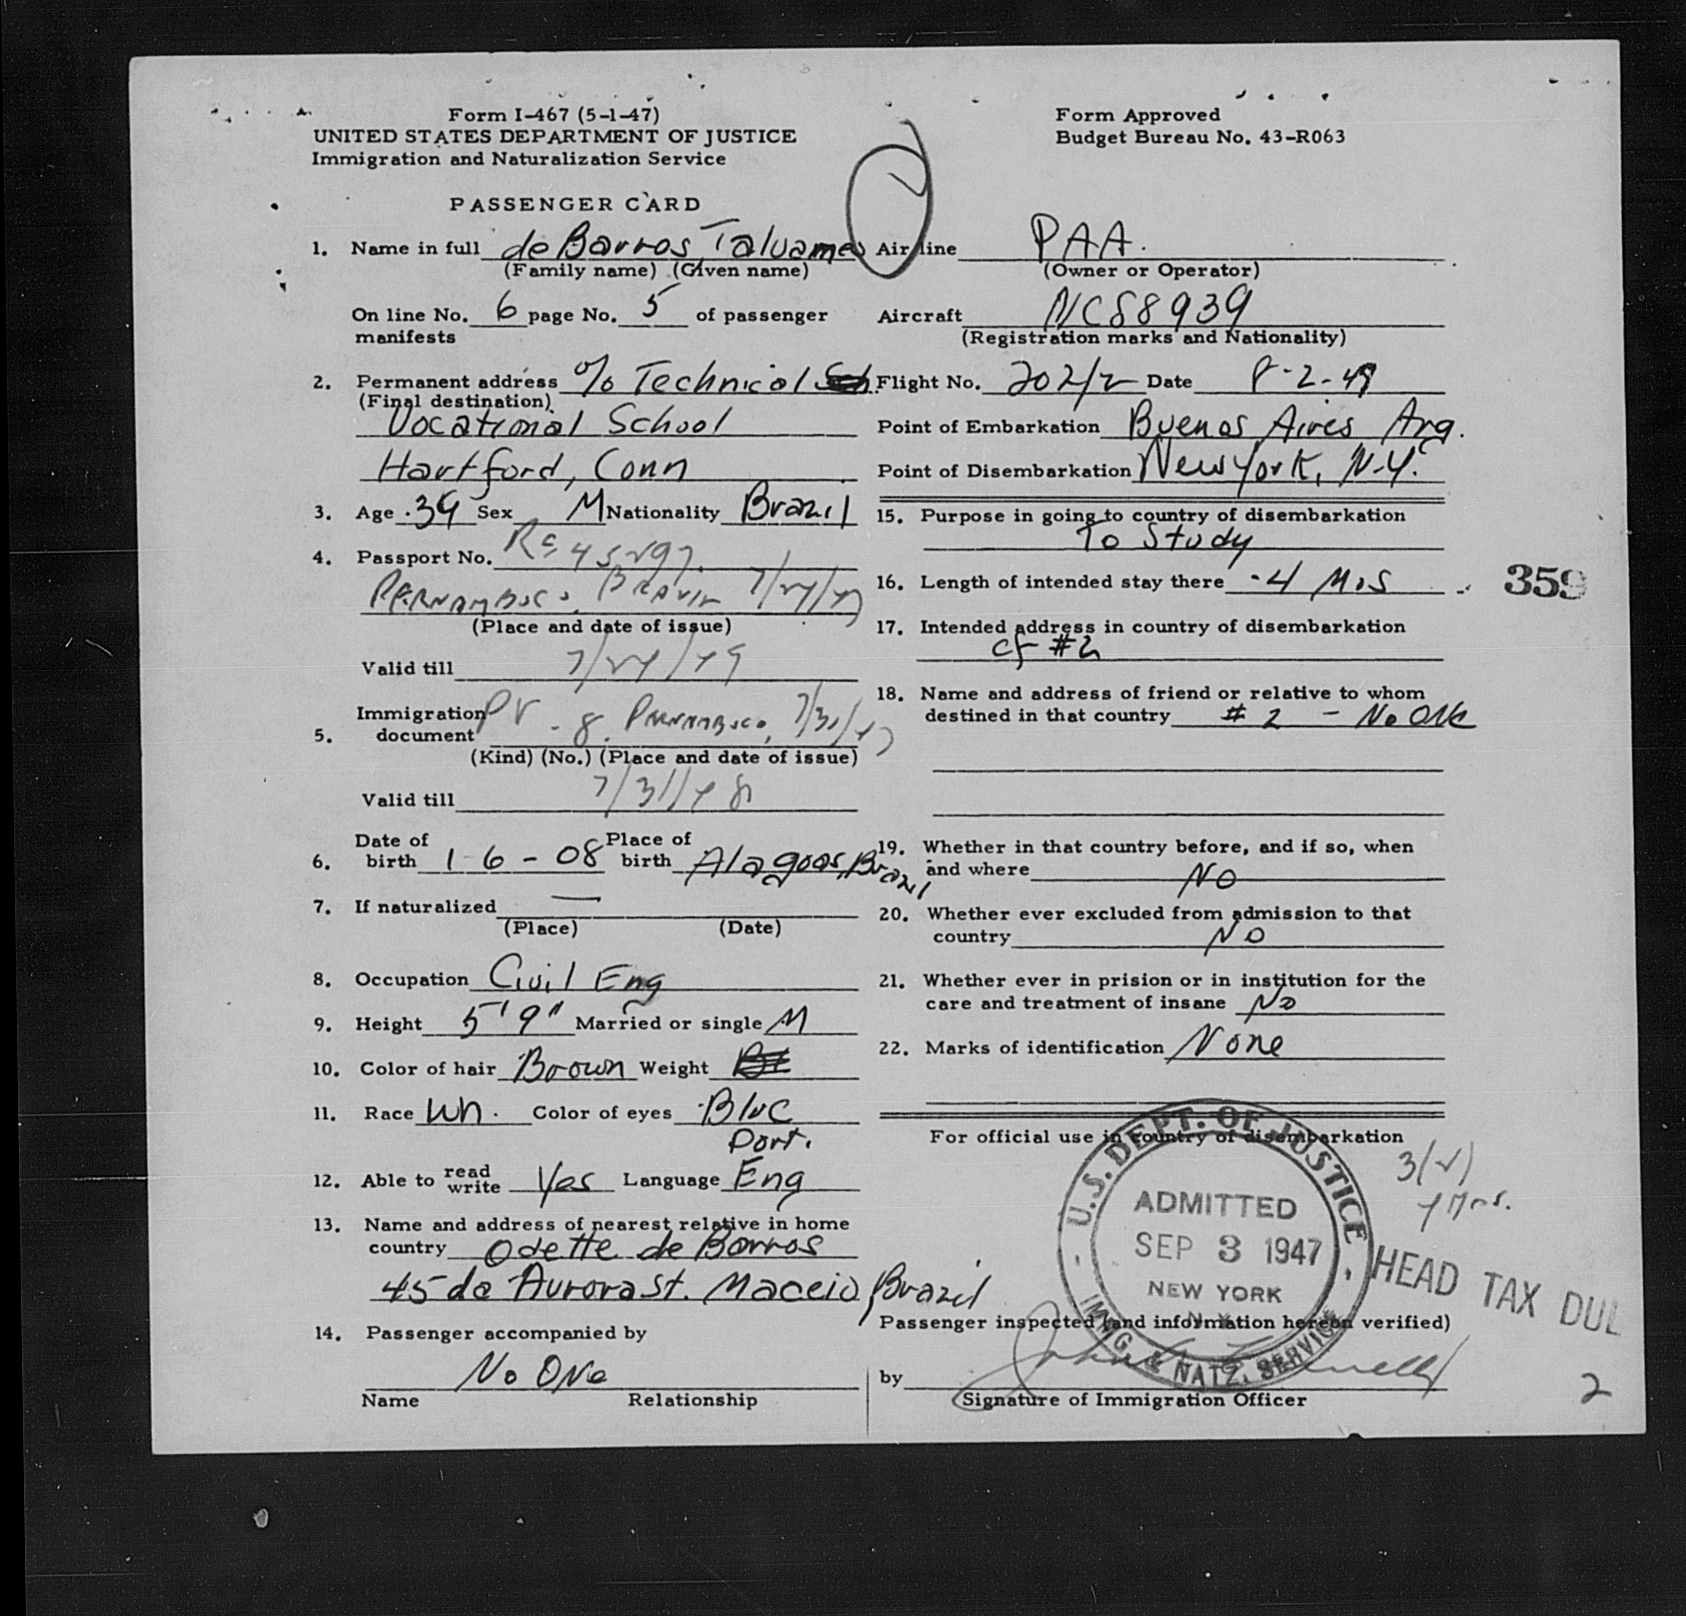 Form I-467 (5-1-47)
UNITED STATES DEPARTMENT OF JUSTICE
Immigration and Naturalization Service
Form Approved
Budget Bureau No. 43-R063
PASSENGER CARD
1. Name in full de Barros Taluames
(Family name) (Given name)
On line No. 6 page No. 5 of passenger
manifests
2. Permanent address % Technical
(Final destination)
Vocational School
Hartford, Conn
3. Age 39 Sex M Nationality Brazil
4. Passport No.
Pernambuco, Brazil 7/24/47
(Place and date of issue)
Valid till 7/24/49
Immigration
5. document PV - 8. Pernambuco, 7/31/47
(Kind) (No.) (Place and date of issue)
Valid till 7/31/48
6. Date of birth 1-6-08 Place of birth Alagoas, Brazil
7. If naturalized —
(Place) (Date)
8. Occupation Civil Eng
9. Height 5'9" Married or single M
10. Color of hair Brown Weight
11. Race Wh. Color of eyes Blue
Port.
12. Able to read write Yes Language Eng
13. Name and address of nearest relative in home
country Odette de Barros
45 da Aurora St. Maceio, Brazil
14. Passenger accompanied by
No One
Name Relationship
Air line PAA.
(Owner or Operator)
Aircraft NC88939
(Registration marks and Nationality)
Flight No. 202/2 Date
Point of Embarkation Buenos Aires Arg.
Point of Disembarkation New York, N.Y.
15. Purpose in going to country of disembarkation
To Study
16. Length of intended stay there 4 Mos
359
17. Intended address in country of disembarkation
cf #2
18. Name and address of friend or relative to whom
destined in that country #2 - No One
19. Whether in that country before, and if so, when
and where No
20. Whether ever excluded from admission to that
country No
21. Whether ever in prision or in institution for the
care and treatment of insane No
22. Marks of identification None
For official use in country of disembarkation
U.S. DEPT. OF JUSTICE
ADMITTED
SEP 3 1947
NEW YORK
N.Y.
IMMIG. & NATZ. SERVICE
HEAD TAX DUE
Passenger inspected (and information hereon verified)
by
Signature of Immigration Officer
2